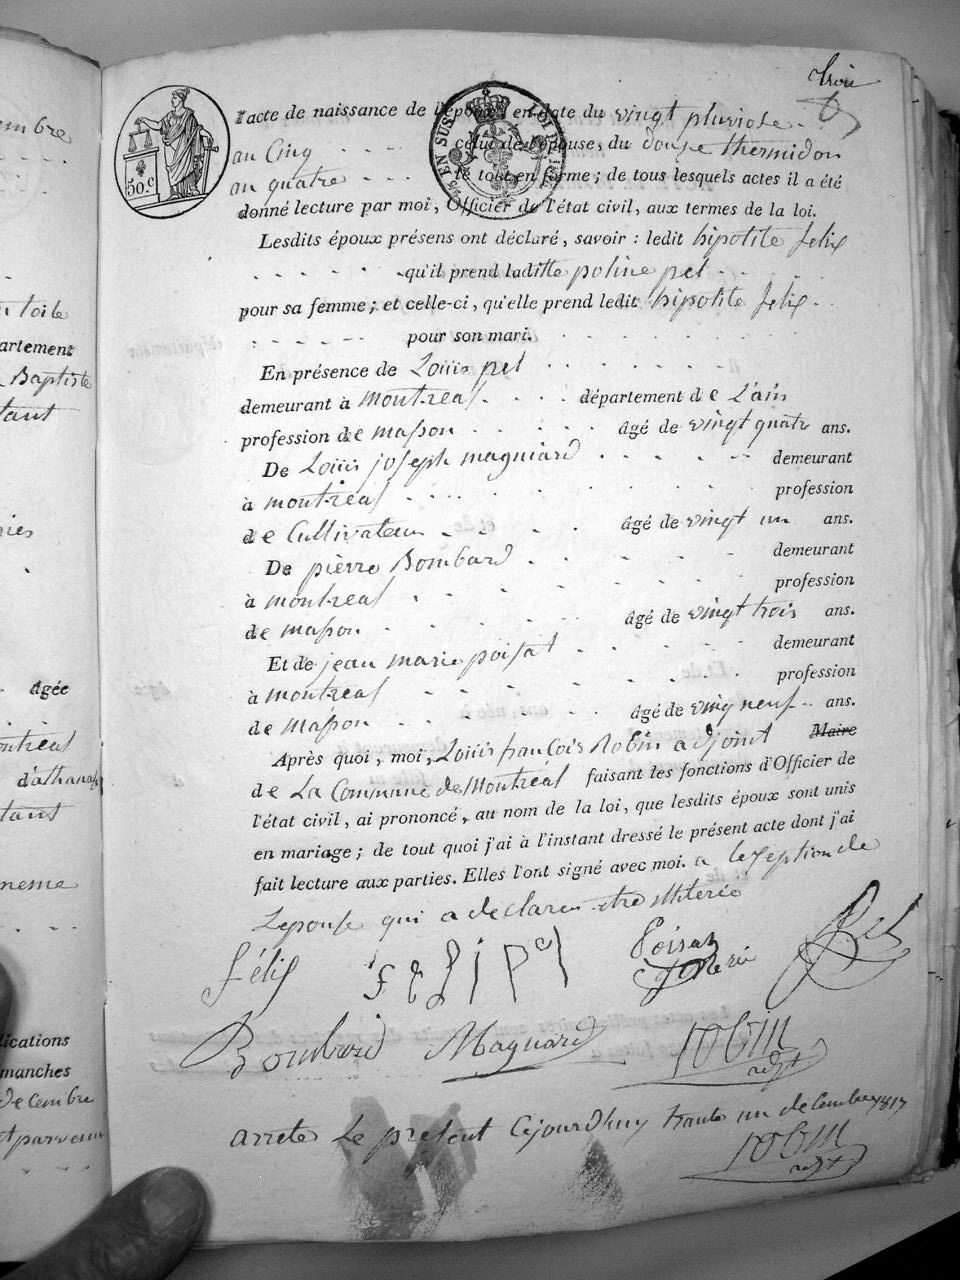 embre
n toile
artement
Baptiste
tant
Agée
ontréal
d'athanase
tant
meme
lications
manches
decembre
et parvenu
trois
50.c
EN SUS
l'acte de naissance de l'époux, en date du vingt pluviose
au Cinq celui de l'épouse, du douze thermidor
an quatre le tout en forme; de tous lesquels actes il a été
donné lecture par moi, Officier de l'état civil, aux termes de la loi.
Lesdits époux présens ont déclaré, savoir: ledit hipolite felix
qu'il prend laditte poline pel
pour sa femme; et celle-ci, qu'elle prend ledit hipolite felix
pour son mari.
En présence de Louis pel
demeurant à montreal département de L'ain
profession de masson âgé de vingt quatre ans.
De Louis joseph magniard demeurant
à montreal profession
de Cultivateur âgé de vingt un ans.
De pierre Bombard demeurant
à montreal profession
de masson âgé de vingt trois ans.
Et de jean marie poisat demeurant
à montreal profession
de masson âgé de vingt neuf ans.
Après quoi, moi, Louis francois Robin adjoint Maire
de La Commune de Montréal faisant les fonctions d'Officier de
l'état civil, ai prononcé, au nom de la loi, que lesdits époux sont unis
en mariage; de tout quoi j'ai à l'instant dressé le présent acte dont j'ai
fait lecture aux parties. Elles l'ont signé avec moi. a lexseption de
Lepouse qui a declaren etre illiterée
félix felipel Poisat Pel
Bombard Magnard robin
adjt
arreter Le present Cejourdhuy trante un decembre 1817
robin
adjt